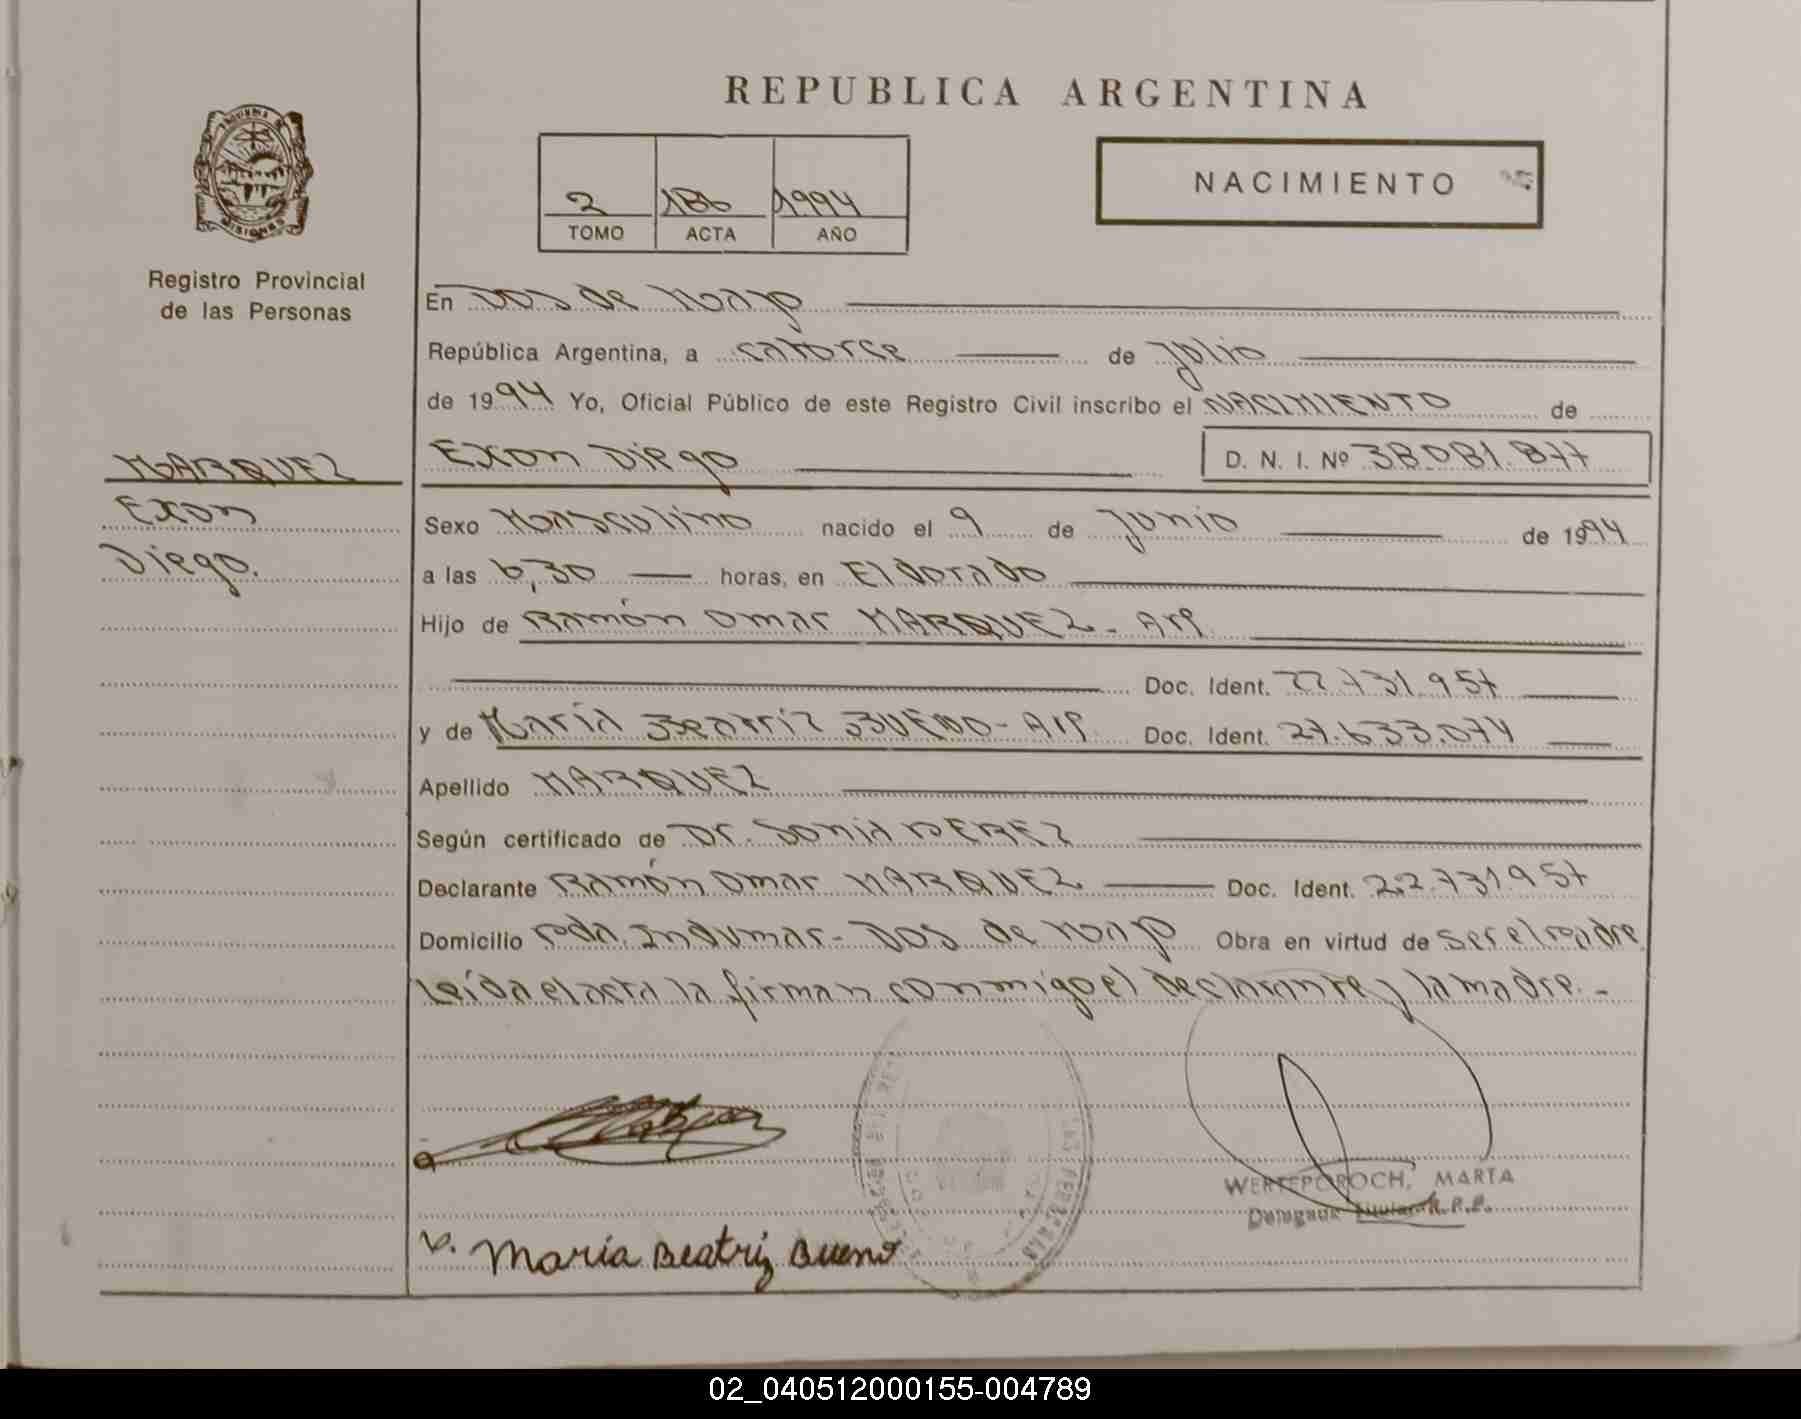 REPUBLICA ARGENTINA
PROVINCIA DE
MISIONES
Registro Provincial
de las Personas
NACIMIENTO
2 186 1994
TOMO ACTA AÑO
En Dos de Mayo
República Argentina, a catorce de Julio
de 1994 Yo, Oficial Público de este Registro Civil inscribo el NACIMIENTO de
MARQUEZ
Exon
Diego.
Exon Diego D. N. I. Nº 38.081.877
Sexo Masculino nacido el 9 de Junio de 1994
a las 6,30 horas, en Eldorado
Hijo de Ramón Omar MARQUEZ - Arg.
Doc. Ident. 22.731.957
y de María Beatriz BUENO - Arg. Doc. Ident. 27.633.074
Apellido MARQUEZ
Según certificado de Dr. Sonia PEREZ
Declarante Ramón Omar MARQUEZ Doc. Ident. 22.731.957
Domicilio Pda. Indumar - Dos de Mayo Obra en virtud de ser el padre
Leída el acta la firman conmigo el declarante y la madre. -
WERTEPOROCH, MARTA
Delegada Titular R.P.P.
Maria Beatriz Bueno
02_040512000155-004789